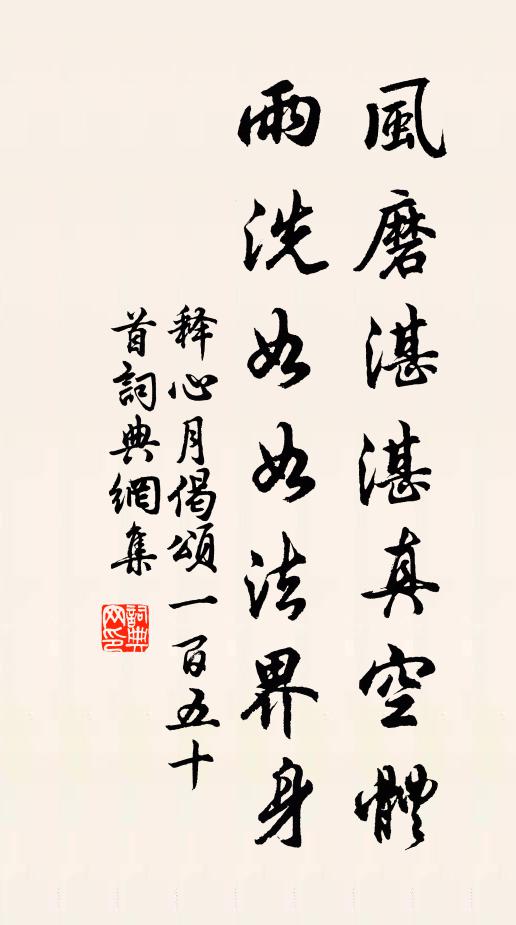 風磨湛湛真空體
雨洗如如法界身
释心月偈頌一百五十
首詞典網集
詞典网印